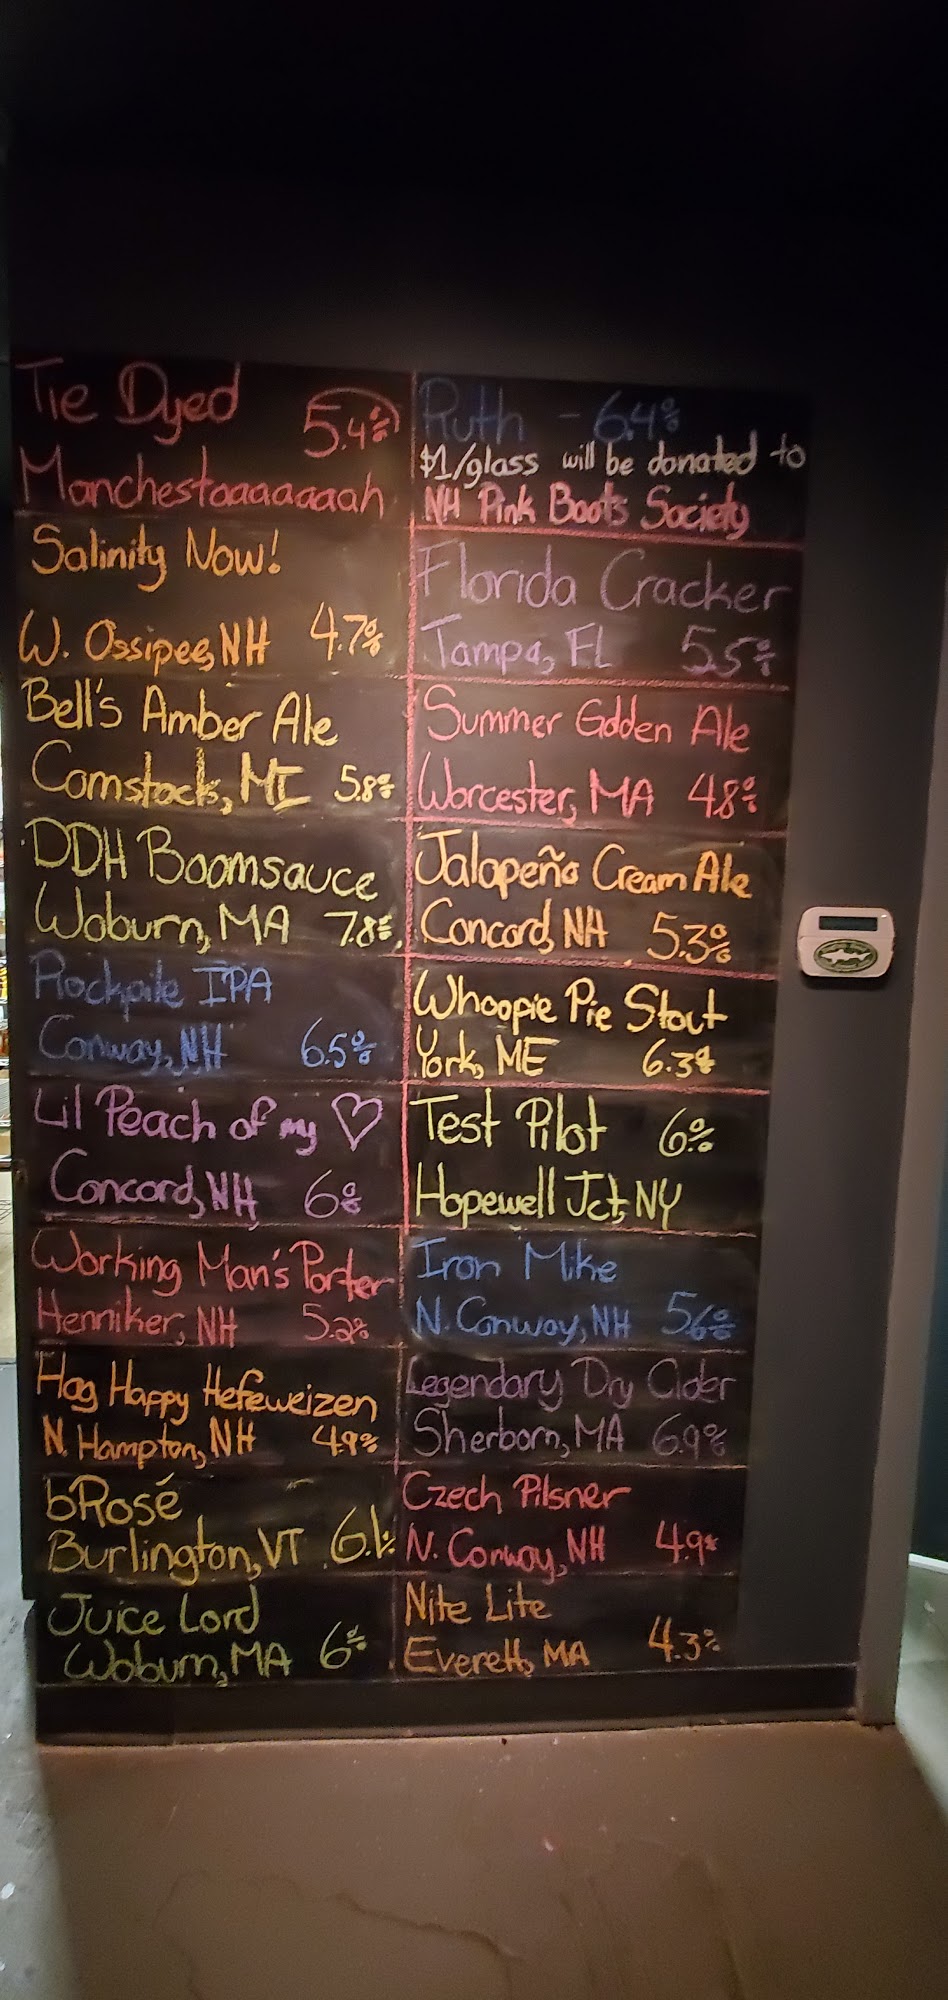 Tie Dyed
5.4%
Manchestaaaaaaah
Salinity Now!
W. Ossipee, NH 4.7%
Bell's Amber Ale
Comstock, MI 5.8%
DDH Boomsauce
Woburn, MA 7.8%
Rockpile IPA
Conway, NH 6.5%
Lil Peach of my ♡
Concord, NH 6%
Working Man's Porter
Henniker, NH 5.2%
Hog Happy Hefeweizen
N. Hampton, NH 4.9%
bRosé
Burlington, VT 6.1%
Juice Lord
Woburn, MA 6%
Ruth - 6.4%
$1/glass will be donated to
NH Pink Boots Society
Florida Cracker
Tampa, FL 5.5%
Summer Golden Ale
Worcester, MA 4.8%
Jalapeño Cream Ale
Concord, NH 5.3%
Whoopie Pie Stout
York, ME 6.3%
Test Pilot 6%
Hopewell Jct, NY
Iron Mike
N. Conway, NH 5.6%
Legendary Dry Cider
Sherborn, MA 6.9%
Czech Pilsner
N. Conway, NH 4.9%
Nite Lite
Everett, MA 4.3%